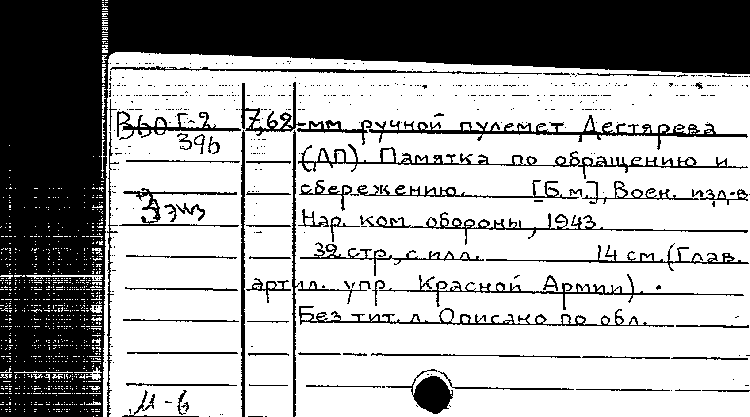 7,62-мм ручной пулемет Дегтярева
(ДП). Памятка по обращению и
сбережению. [Б.м.], Воен. изд-в
Нар. ком. обороны, 1943.
32 стр., с илл. 14 см. (Глав.
артил. упр. Красной Армии).
Без тит. л. Описано по обл.
Г-2
39б
3 экз
М-6